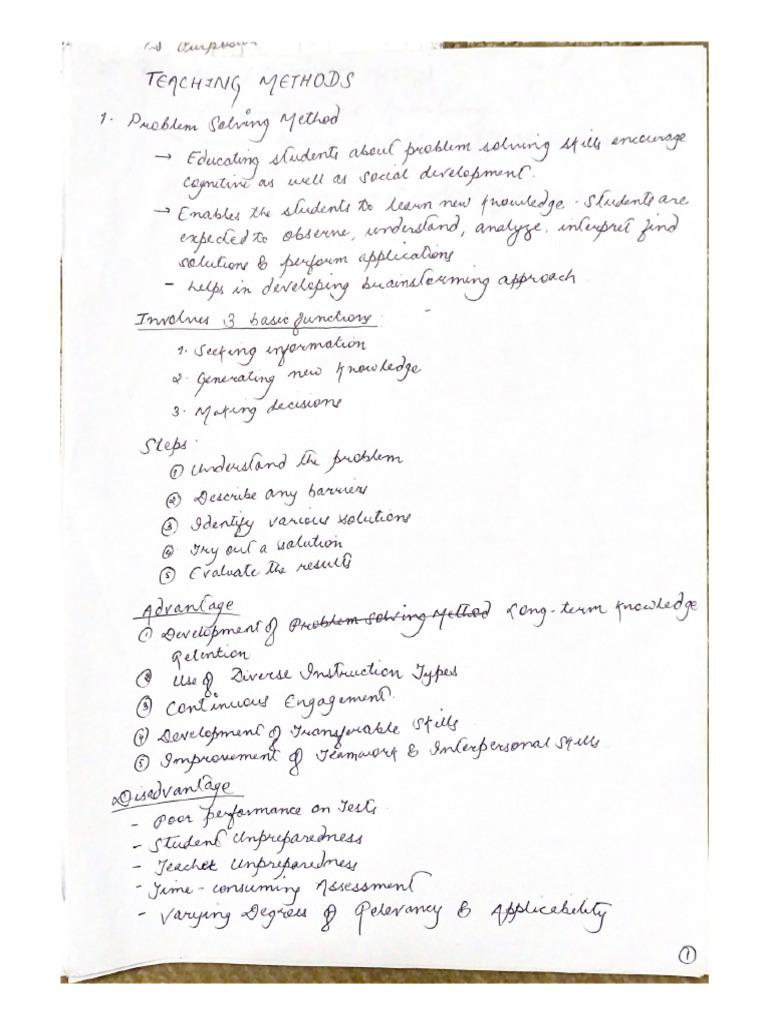 TEACHING METHODS
1. Problem Solving Method
→ Educating students about problem solving skills encourage
cognitive as well as social development.
→ Enables the students to learn new knowledge. Students are
expected to observe, understand, analyze, interpret find
solutions & perform applications
- helps in developing brainstorming approach.
Involves 3 basic functions.
1. Seeking information
2. Generating new knowledge
3. Making decisions
Steps.
① Understand the problem
② Describe any barriers
③ Identify various solutions
④ Try out a solution
⑤ Evaluate the results
Advantage
① Development of Problem Solving Method Long-term knowledge
Retention
② Use of Diverse Instruction Types
③ Continuous Engagement.
④ Development of Transferable Skills
⑤ Improvement of Teamwork & Interpersonal Skills
Disadvantage
- Poor Performance on Tests
- Student Unpreparedness
- Teacher Unpreparedness
- Time-consuming Assessment
- Varying Degress of Relevancy & Applicability
①